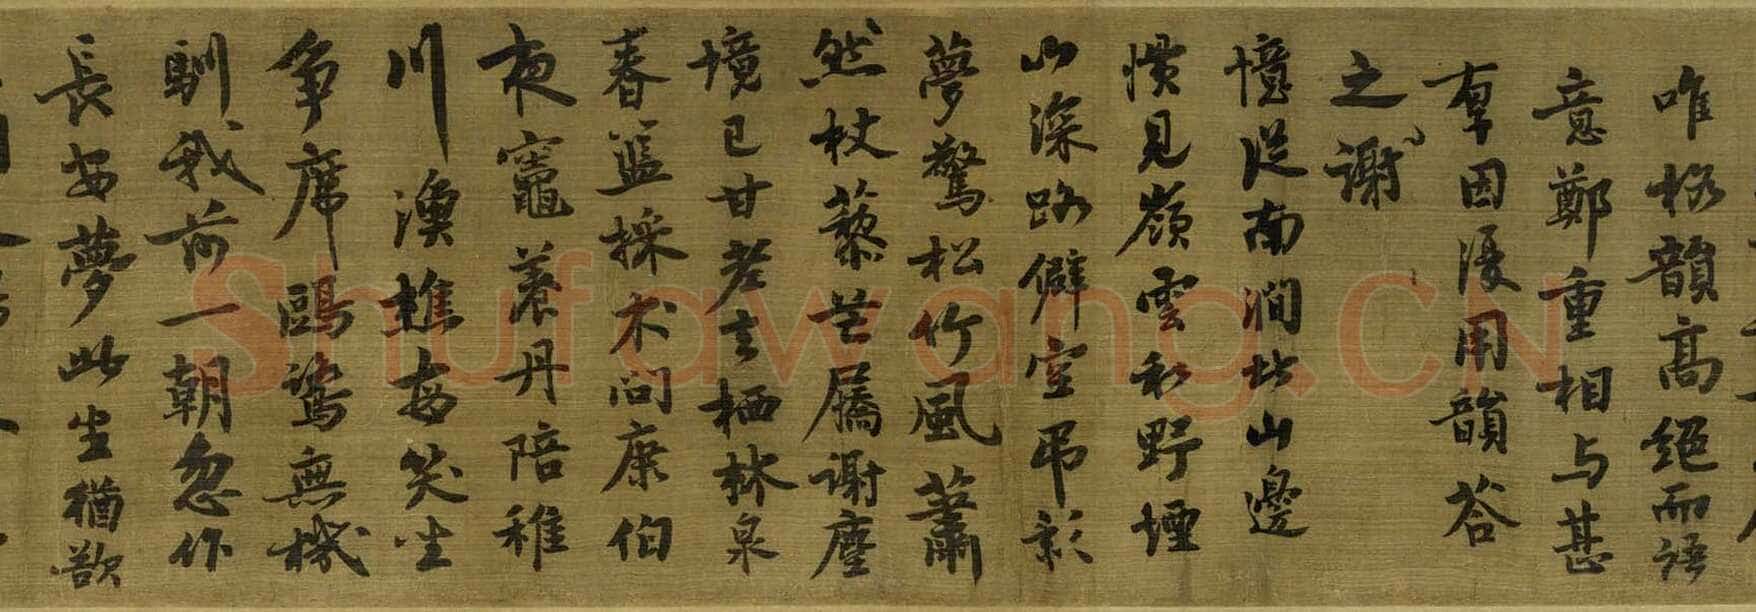 唯格韻高絕而語
意鄭重相与甚
厚因复用韻荅
之謝
憶從南澗北山邊
慣見嶺雲和野煙
山深路僻空弔影
夢驚松竹風蕭
然杖藜芒屩謝塵
境已甘老去栖林泉
春籃採朮問康伯
夜竈養丹陪稚
川漁樵每笑坐
爭席鷗鷺無機
馴我前一朝忽作
長安夢此生猶欲
Shufawang.CN